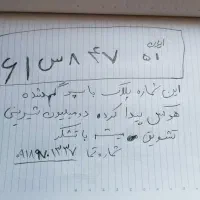 ایران
۶۱ س ۸۴۷ ۵۱
این شماره پلاک با سپر گم شده
هرکس پیدا کرد. دو میلیون شیرینی
تشویق میشه با تشکر
شماره تما ۰۹۱۸۹۷۰۱۳۳۷